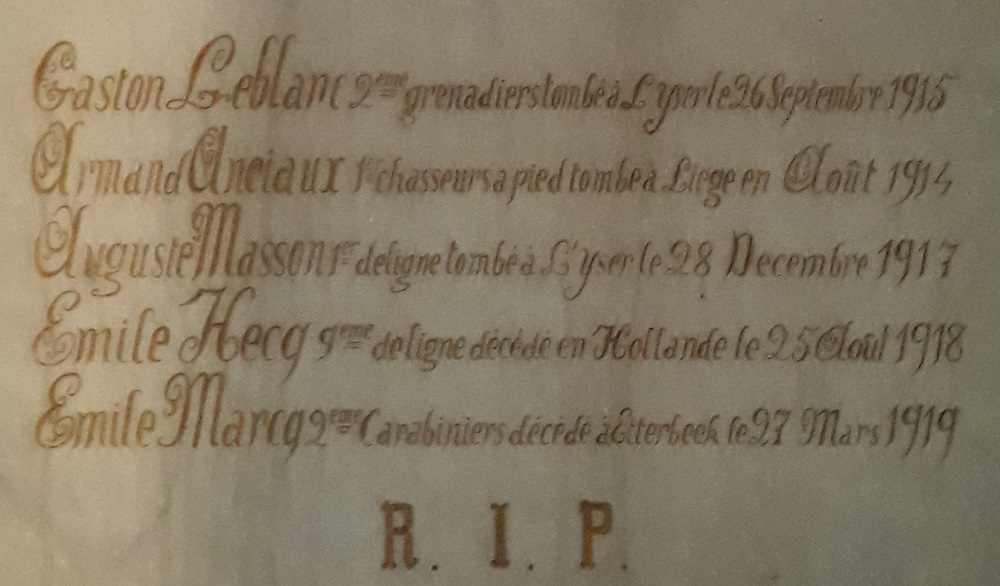 Gaston Leblanc 2eme grenadiers tombé à L'yser le 26 Septembre 1915
Armand Anciaux 1er chasseurs a pied tombé a Liege en Août 1914
Auguste Masson 1er de ligne tombé à L'yser le 28 Decembre 1917
Emile Hecq 9eme de ligne décédé en Hollande le 25 Août 1918
Emile Marcq 2eme Carabiniers décédé à Etterbeek le 27 Mars 1919
R. I. P.